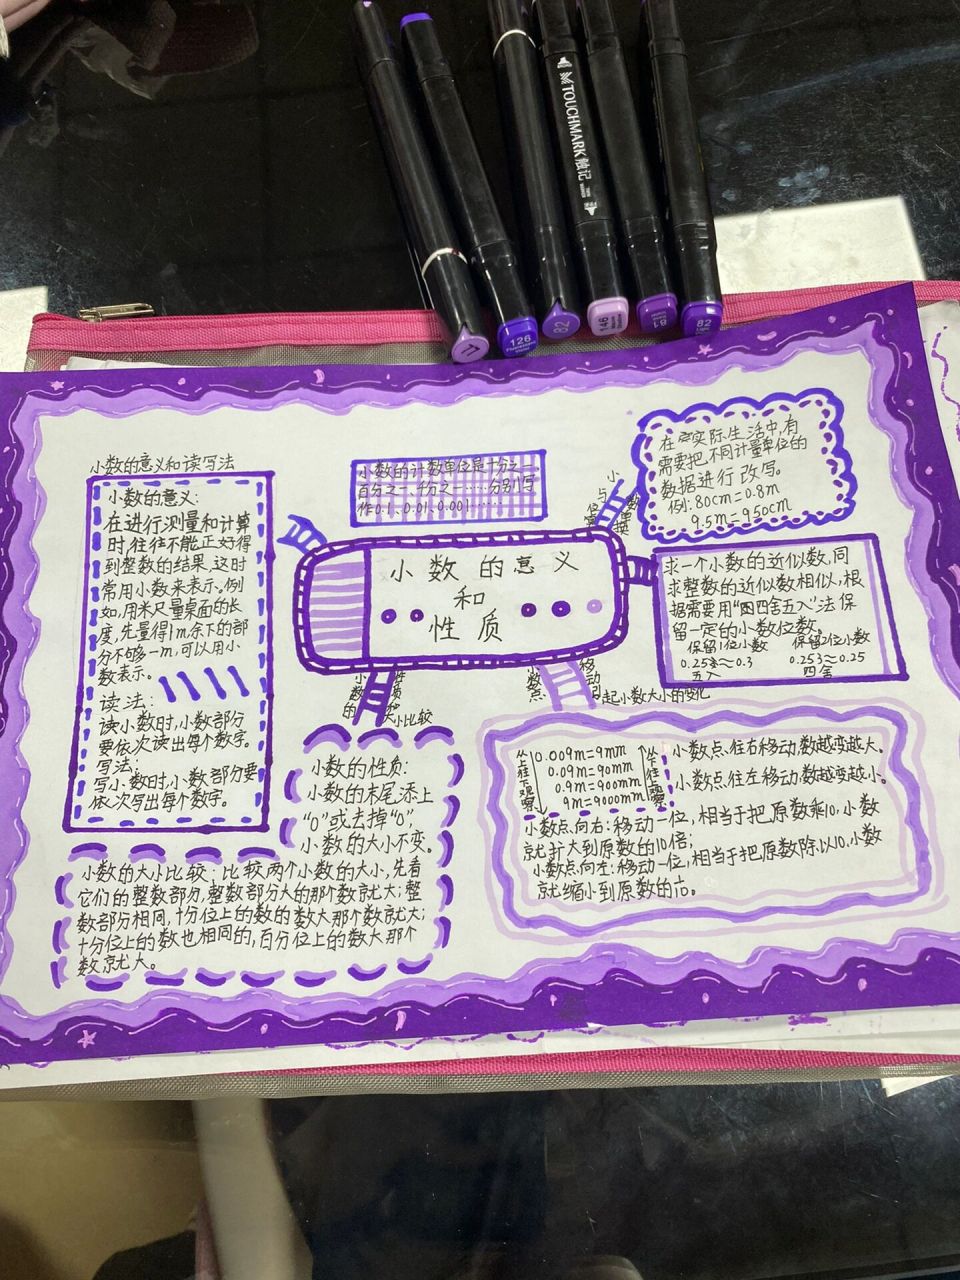 TOUCHMARK 触记
77
126
82
146
81
82
小数的意义和读写法
小数的意义:
在进行测量和计算
时,往往不能正好得
到整数的结果,这时
常用小数来表示。例
如,用米尺量桌面的长
度,先量得1m,余下的部
分不够一m,可以用小
数表示。
读法:
读小数时,小数部分
要依次读出每个数字。
写法:
写小数时,小数部分要
依次写出每个数字。
小数的计数单位是十分之一
百分之一、千分之一……分别写
作0.1、0.01、0.001……
小数
与单
位换
在实际生活中,有
需要把,不同计量单位的
数据进行改写。
例:80cm=0.8m
9.5m=950cm
小数的意义
和
性质
求一个小数的近似数,同
求整数的近似数相似,根
据需要用“四舍五入”法保
留一定的小数位数。
保留1位小数 保留2位小数
0.253≈0.3 0.253≈0.25
五入 四舍
小数的
性质和
大小比较
小数点
移动
引起小数大小的变化
小数的性质:
小数的末尾添上
“0”或去掉“0”,
小数的大小不变。
小数的大小比较:比较两个小数的大小,先看
它们的整数部分,整数部分大的那个数就大;整
数部分相同,十分位上的数的数大那个数就大;
十分位上的数也相同的,百分位上的数大那个
数就大。
从上往下观察
0.009m=9mm
0.09m=90mm
0.9m=900mm
9m=9000mm
从下往上观察
小数点,往右移动,数越变越大。
小数点,往左移动,数越变越小。
小数点,向右:移动一位,相当于把原数乘10,小数
就扩大到原数的10倍;
小数点,向左:移动一位,相当于把原数除以10,小数
就缩小到原数的1/10。